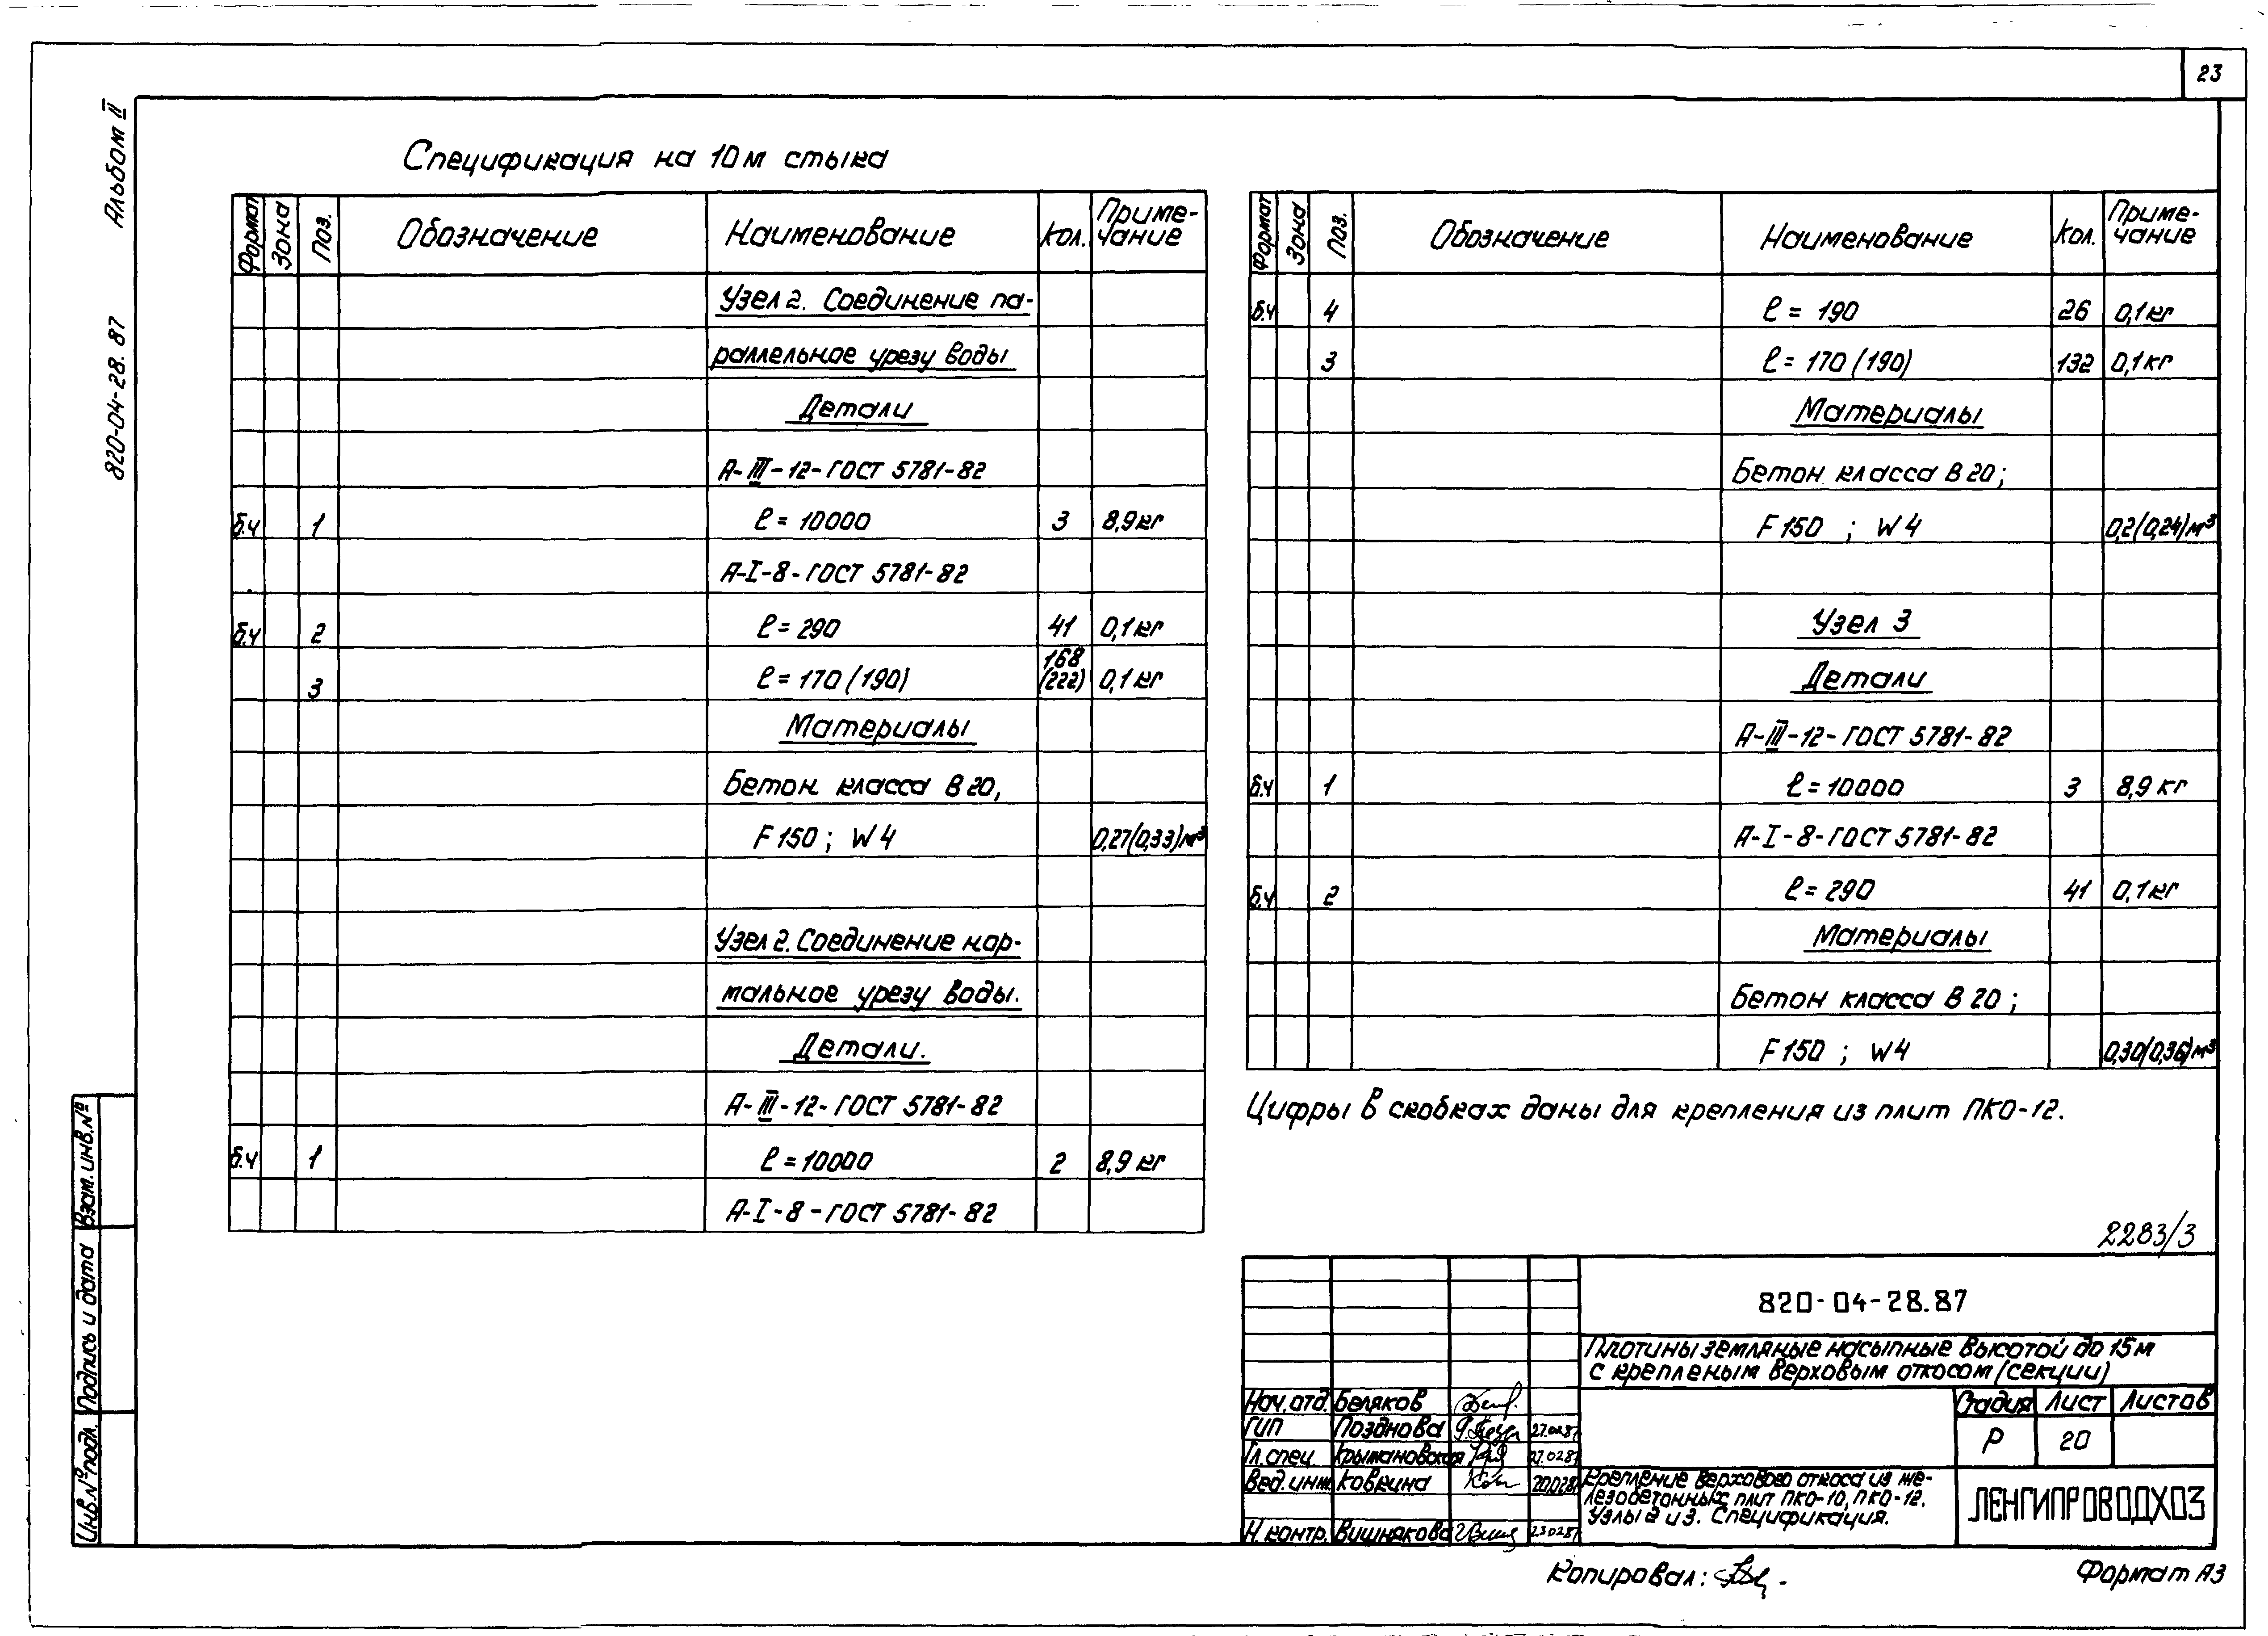 23
Альбом II
820-04-28.87
Спецификация на 10м стыка
Формат Зона Поз. Обозначение Наименование Кол. Приме-
чание
Узел 2. Соединение па-
раллельное урезу воды
Детали
А-III-12-ГОСТ 5781-82
б.ч 1 ℓ=10000 3 8,9кг
А-I-8-ГОСТ 5781-82
б.ч 2 ℓ=290 41 0,1кг
3 ℓ=170(190) 168 (222) 0,1кг
Материалы
Бетон класса В20,
F150; W4 0,27(0,33)м³
Узел 2. Соединение нор-
мальное урезу воды.
Детали.
А-III-12-ГОСТ 5781-82
б.ч 1 ℓ=10000 2 8,9кг
А-I-8-ГОСТ 5781-82
Формат Зона Поз. Обозначение Наименование Кол. Приме-
чание
б.ч 4 ℓ=190 26 0,1кг
3 ℓ=170(190) 132 0,1кг
Материалы
Бетон класса В20;
F150 ; W4 0,2(0,24)м³
Узел 3
Детали
А-III-12-ГОСТ 5781-82
б.ч 1 ℓ=10000 3 8,9кг
А-I-8-ГОСТ 5781-82
б.ч 2 ℓ=290 41 0,1кг
Материалы
Бетон класса В20;
F150 ; W4 0,30(0,36)м³
Цифры в скобках даны для крепления из плит ПКО-12.
2283/3
820-04-28.87
Плотины земляные насыпные высотой до 15м
с крепленым верховым откосом (секции)
Нач.отд. Беляков
ГИП Позднова 27.0287
Гл.спец. Крымановская 27.0287
Вед.инж. Ковкина 20.0287
Н.контр. Вишнякова 23.0287
Стадия Лист Листов
Р 20
Крепление верхового откоса из же-
лезобетонных плит ПКО-10, ПКО-12.
Узлы 2 и 3. Спецификация.
ЛЕНГИПРОВОДХОЗ
Копировал:
Формат А3
Взам.инв.№
Подпись и дата
Инв.№подл.